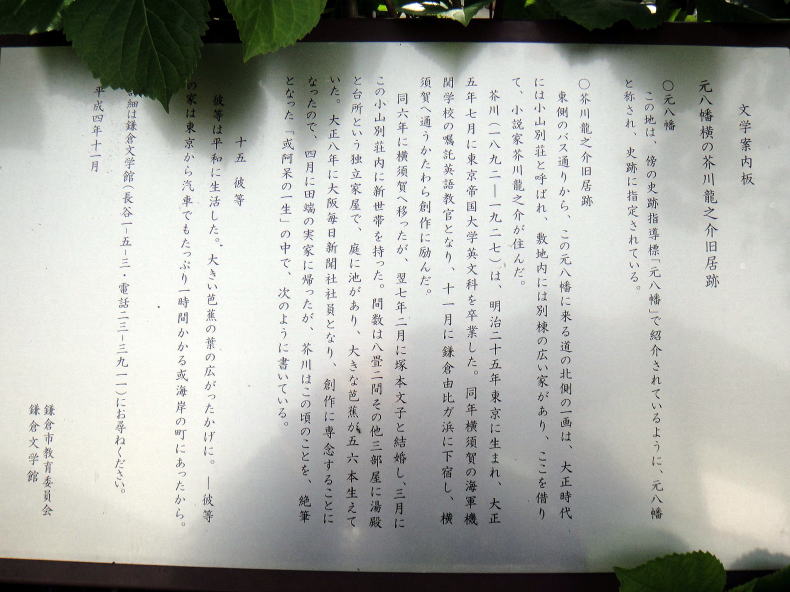 文学案内板
元八幡横の芥川龍之介旧居跡
〇元八幡
この地は、傍の史跡指導標「元八幡」で紹介されているように、元八幡
と称され、史跡に指定されている。
〇芥川龍之介旧居跡
東側のバス通りから、この元八幡に来る道の北側の一画は、大正時代
には小山別荘と呼ばれ、敷地内には別棟の広い家があり、ここを借り
て、小説家芥川龍之介が住んだ。
芥川(一八九二―一九二七)は、明治二十五年東京に生まれ、大正
五年七月に東京帝国大学英文科を卒業した。同年横須賀の海軍機
関学校の嘱託英語教官となり、十一月に鎌倉由比ガ浜に下宿し、横
須賀へ通うかたわら創作に励んだ。
同六年に横須賀へ移ったが、翌七年二月に塚本文子と結婚し、三月に
この小山別荘内に新世帯を持った。間数は八畳二間その他三部屋に湯殿
と台所という独立家屋で、庭に池があり、大きな芭蕉が五六本生えて
いた。大正八年に大阪毎日新聞社社員となり、創作に専念することに
なったので、四月に田端の実家に帰ったが、芥川はこの頃のことを、絶筆
となった「或阿呆の一生」の中で、次のように書いている。
十五 彼等
彼等は平和に生活した。大きい芭蕉の葉の広がったかげに。―彼等
の家は東京から汽車でもたっぷり一時間かかる或海岸の町にあったから。
細は鎌倉文学館(長谷一-五-三・電話二三-三九一一)にお尋ねください。
平成四年十一月
鎌倉市教育委員会
鎌倉文学館